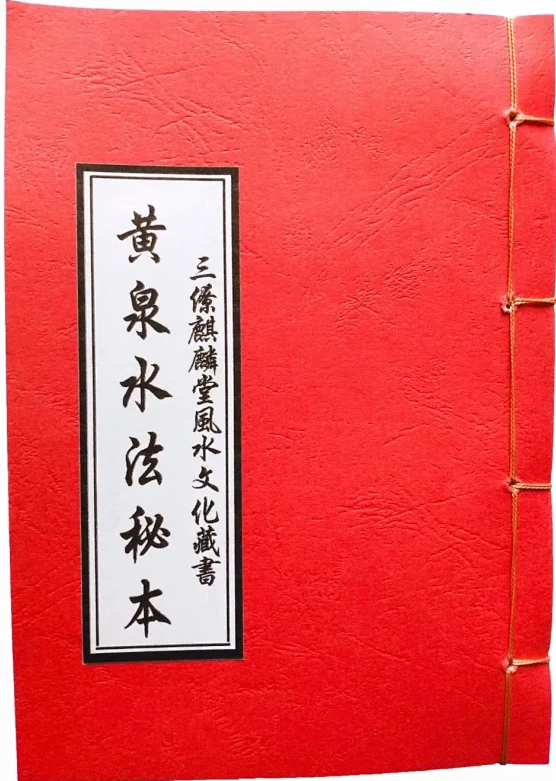 三僚麒麟堂風水文化藏書
黃泉水法秘本